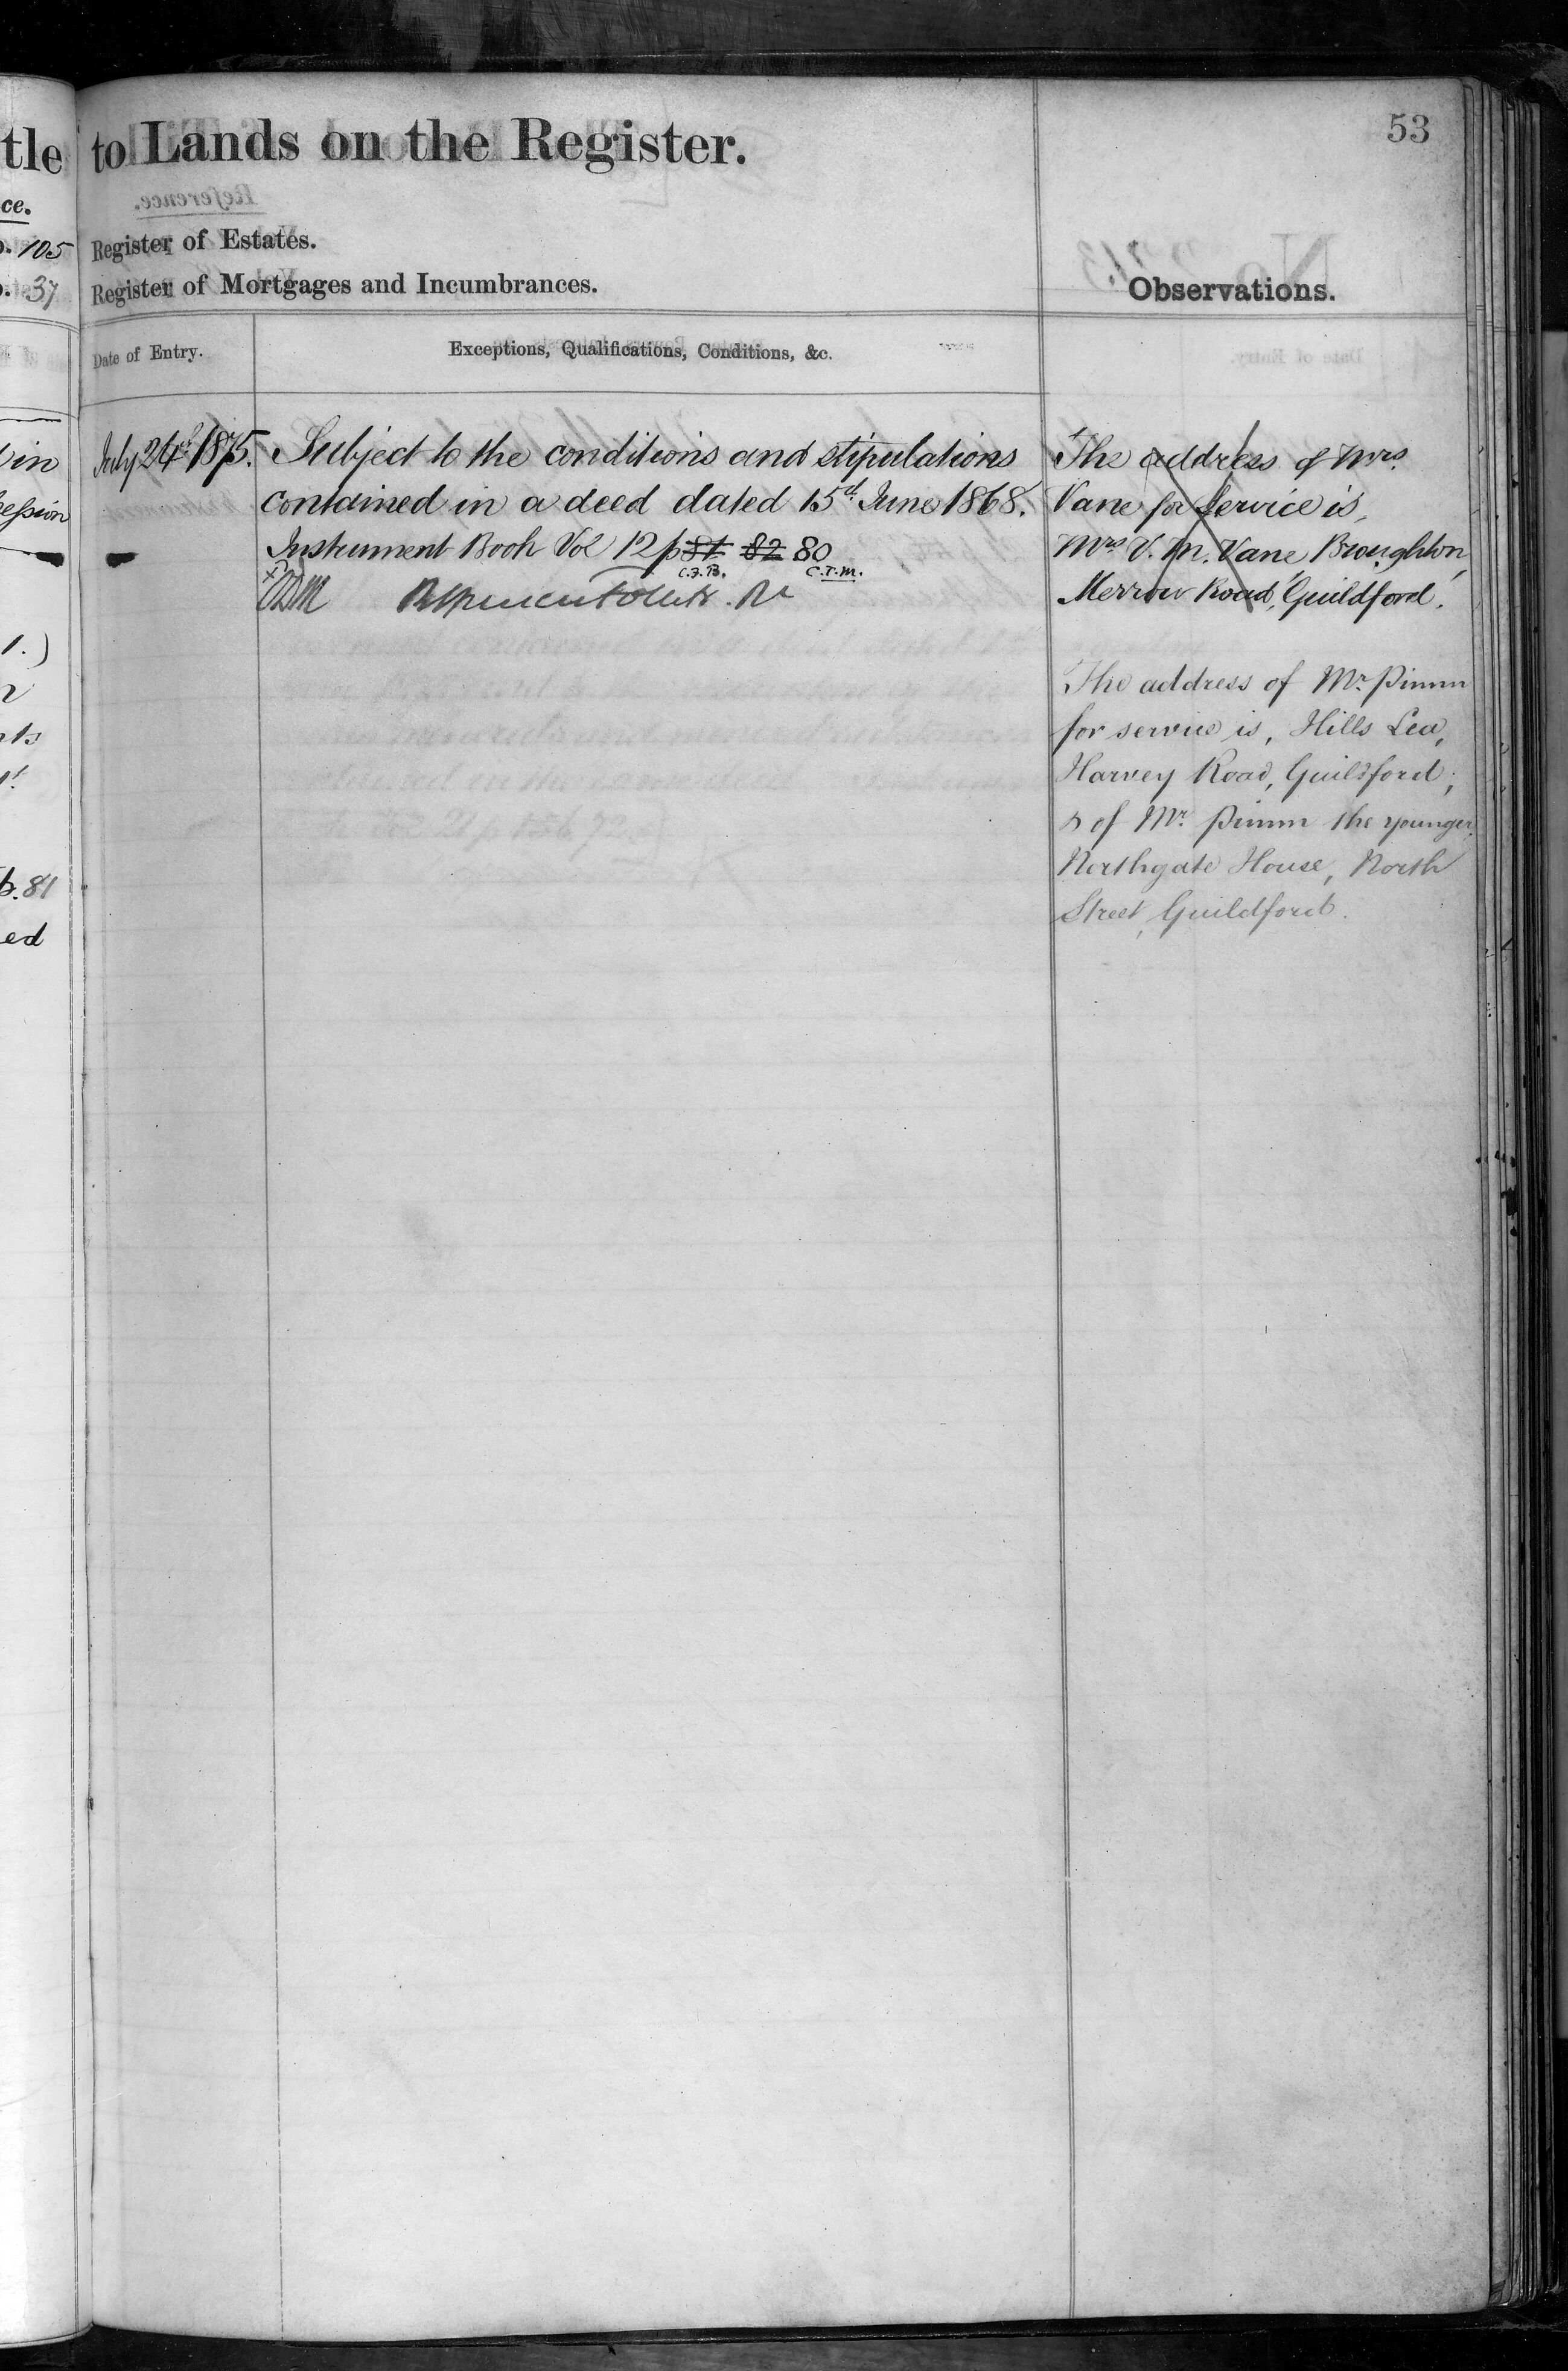 tle to Lands on the Register.
53
ce.
105 Register of Estates.
37 Register of Mortgages and Incumbrances.
Observations.
Date of Entry.
Exceptions, Qualifications, Conditions, &c.
July 24th 1875. Subject to the conditions and stipulations
contained in a deed dated 15th June 1868.
Instrument Book Vol 12 p 81 82 80
C.J.B. C.T.M.
The address of Mrs.
Vane for service is,
Mrs V. M. Vane Broughton,
Merrow Road, Guildford.
The address of Mr. Pimm
for service is, Hills Lea,
Harvey Road, Guildford;
& of Mr. Pimm the younger,
Northgate House, North
Street, Guildford.
in
ession
1.)
nts
p. 81
ed